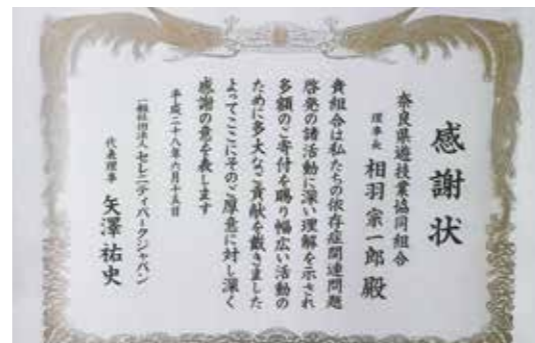 感謝状
奈良県遊技業協同組合
理事長 相羽宗一郎 殿
貴組合は私たちの依存症関連問題
啓発の諸活動に深い理解を示され
多額のご寄付を賜り幅広い活動の
ために多大なご貢献を戴きました
よってここにそのご厚意に対し深く
感謝の意を表します
平成二十八年六月十五日
一般社団法人 セレニティパークジャパン
代表理事 矢澤祐史